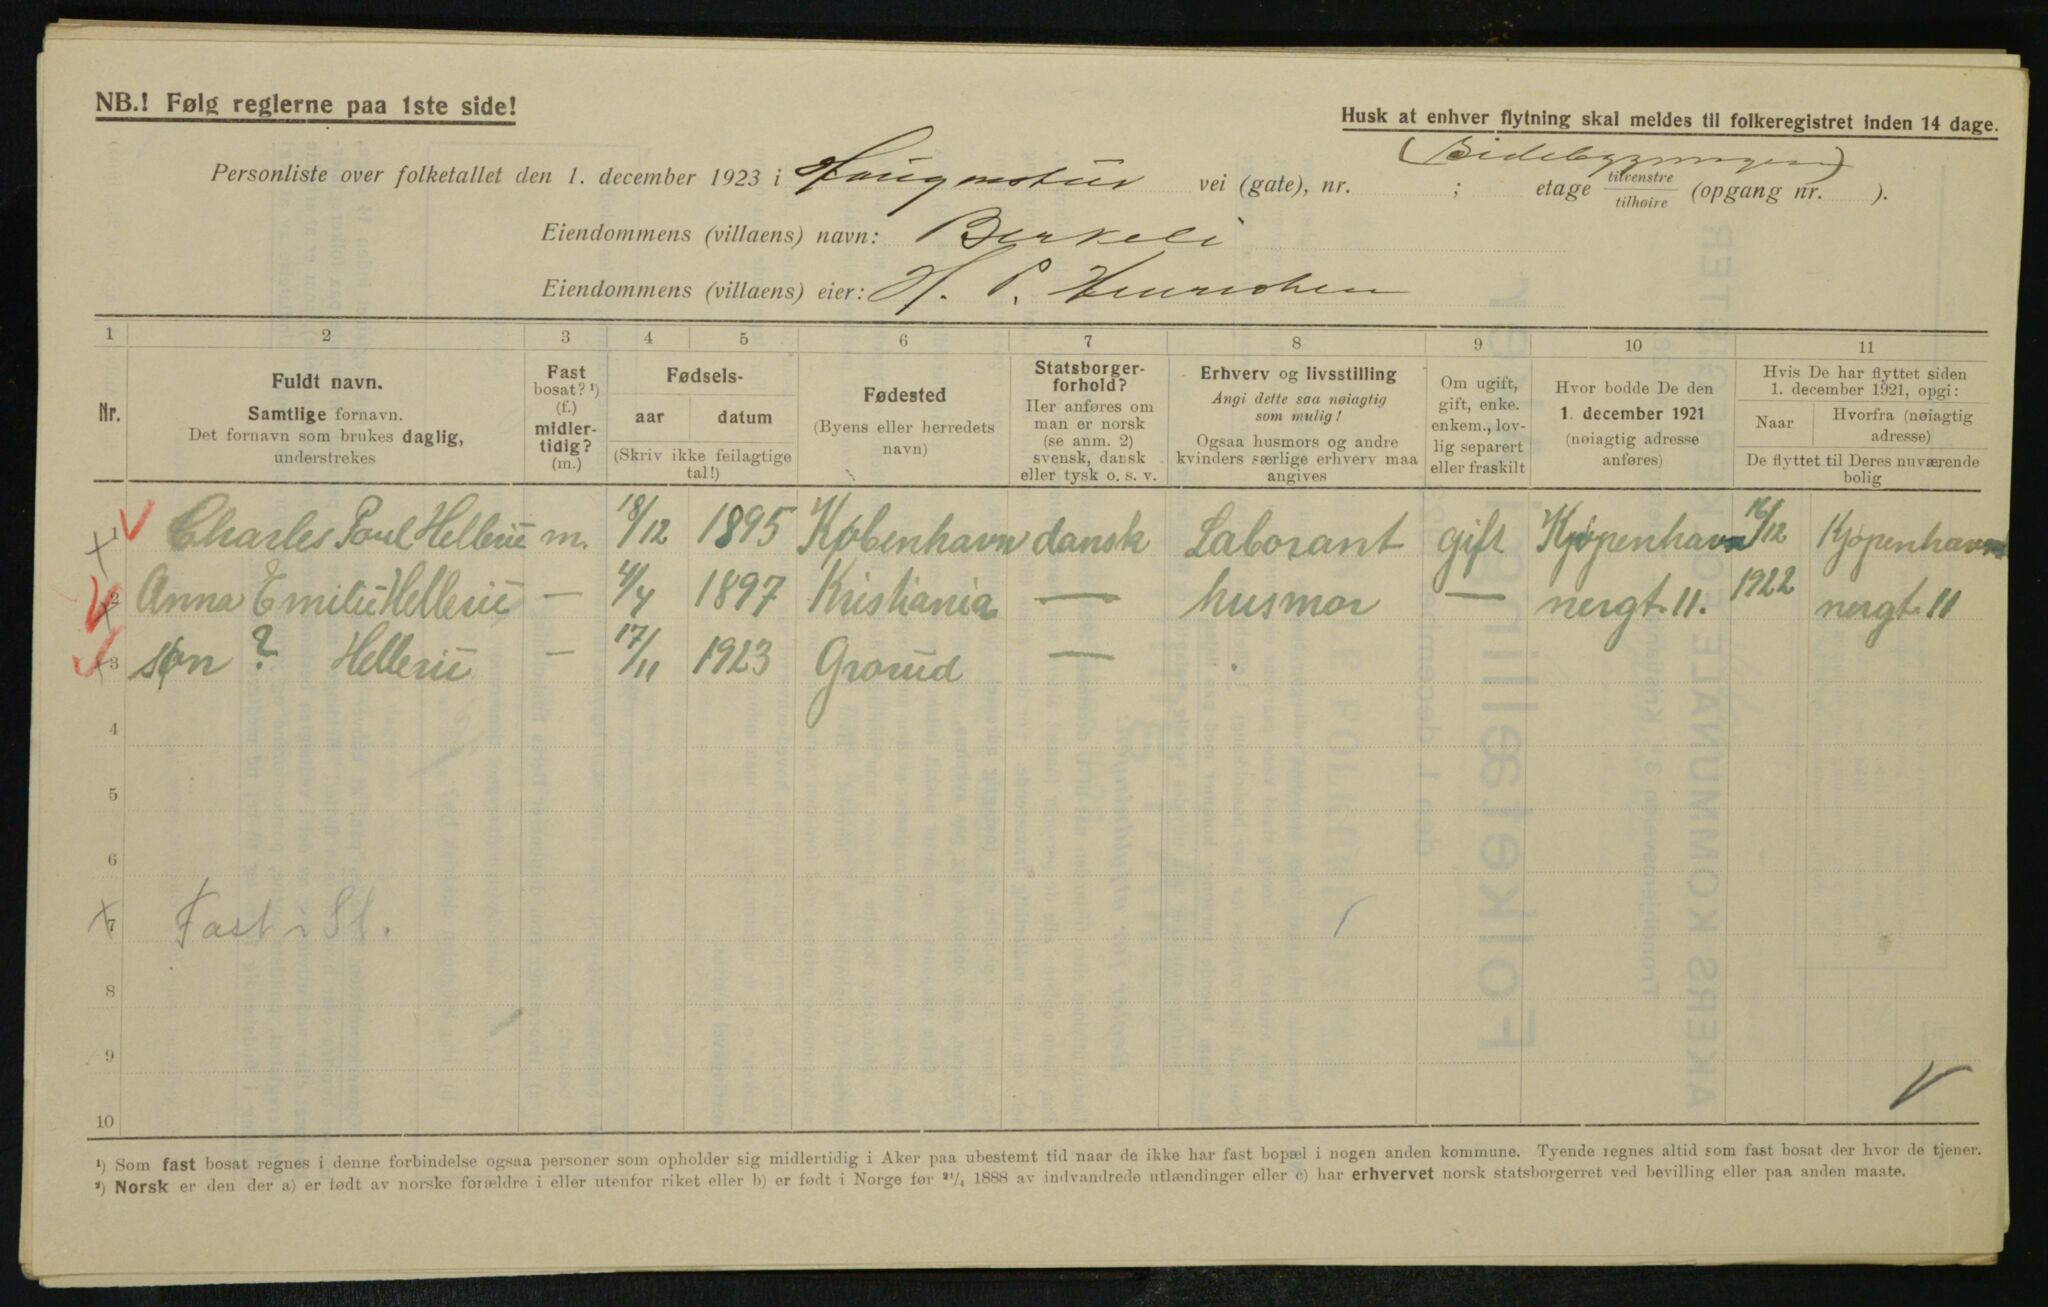 NB.! Følg reglerne paa 1ste side!
Husk at enhver flytning skal meldes til folkeregistret inden 14 dage.
(Sidebygningen)
Personliste over folketallet den 1. december 1923 i Haugenstua vei (gate), nr. ; etage tilvenstre tilhøire (opgang nr. ).
Eiendommens (villaens) navn: Berkeli
Eiendommens (villaens) eier: H. P. Henrichsen
1 2 3 4 5 6 7 8 9 10 11
Nr.
Fuldt navn.
Samtlige fornavn.
Det fornavn som brukes daglig,
understrekes
Fast
bosat? ¹)
(f.)
midler-
tidig?
(m.)
Fødsels-
aar datum
(Skriv ikke feilagtige
tal!)
Fødested
(Byens eller herredets
navn)
Statsborger-
forhold?
Her anføres om
man er norsk
(se anm. 2)
svensk, dansk
eller tysk o. s. v.
Erhverv og livsstilling
Angi dette saa nøiagtig
som mulig!
Ogsaa husmors og andre
kvinders særlige erhverv maa
angives
Om ugift,
gift, enke.
enkem., lov-
lig separert
eller fraskilt
Hvor bodde De den
1. december 1921
(nøiagtig adresse
anføres)
Hvis De har flyttet siden
1. december 1921, opgi:
Naar
Hvorfra (nøiagtig
adresse)
De flyttet til Deres nuværende
bolig
1 Charles Poul Hellerii m. 18/12 1895 København dansk Laborant gift Kjøpenhavn 16/12 Kjøpenhavn
2 Anna Emilie Hellerii — 4/4 1897 Kristiania — husmor — nergt. 11. 1922 nergt. 11
3 søn ? Hellerii — 17/11 1923 Grorud —
4
5
6
7 Fast i St.
8
9
10
¹) Som fast bosat regnes i denne forbindelse ogsaa personer som opholder sig midlertidig i Aker paa ubestemt tid naar de ikke har fast bopæl i nogen anden kommune. Tyende regnes altid som fast bosat der hvor de tjener.
²) Norsk er den der a) er født av norske forældre i eller utenfor riket eller b) er født i Norge før 21/4 1888 av indvandrede utlændinger eller c) har erhvervet norsk statsborgerret ved bevilling eller paa anden maate.